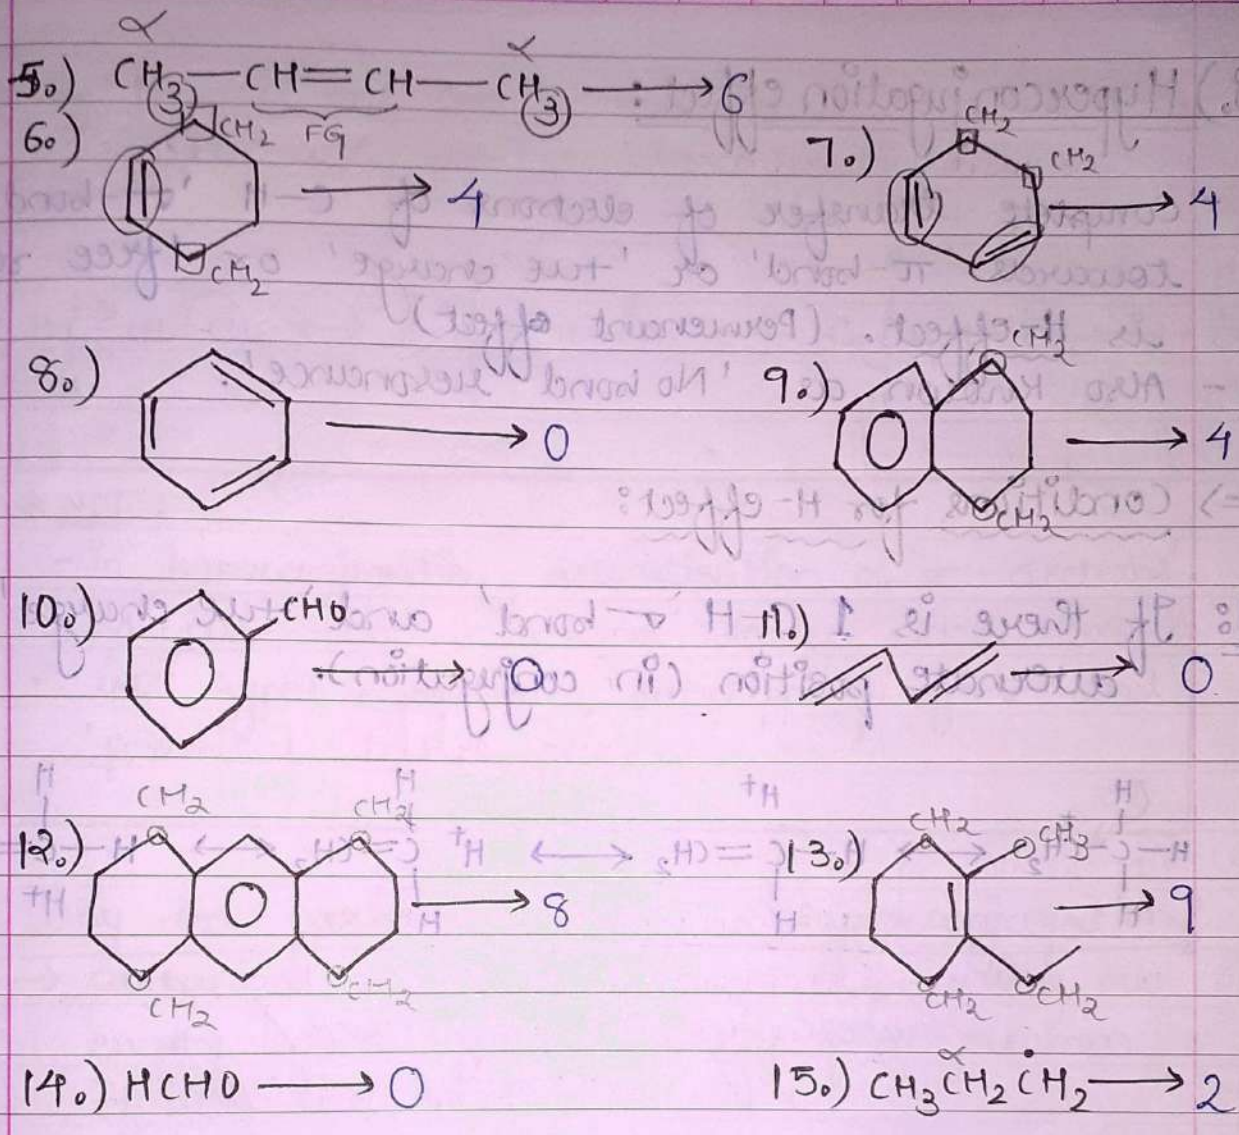 α α
5.) CH3—CH=CH—CH3 → 6
(3) FG (3)
6.) CH2 CH2 → 4
7.) CH2 CH2 → 4
8.) → 0
9.) CH2 CH2 → 4
10.) CHO → 0
11.) → 0
12.) CH2 CH2 CH2 CH2 → 8
13.) CH2 CH3 CH2 CH2 → 9
14.) HCHO → 0
α
15.) CH3CH2ĊH2 → 2